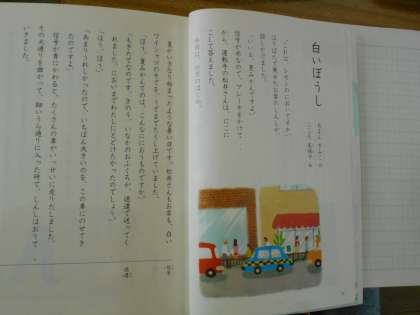 白いぼうし
あまん きみこ 作
「これは、レモンのにおいですか。」
ほりばたで乗せたお客のしんしが、
話しかけました。
「いいえ、夏みかんですよ。」
信号が赤なので、ブレーキをかけて
から、運転手の松井さんは、にこに
こして答えました。
今日は、六月のはじめ。
夏がいきなり始まったような暑い日です。松井さんもお客も、白い
ワイシャツのそでを、うでまでたくし上げていました。
「ほう、夏みかんてのは、こんなににおうものですか。」
「もぎたてなのです。きのう、いなかのおふくろが、速達で送ってく
れました。においまでわたしにとどけたかったのでしょう。」
「ほう、ほう。」
「あまりうれしかったので、いちばん大きいのを、この車にのせてき
たのですよ。」
信号が青にかわると、たくさんの車がいっせいに走りだしました。
その大通りを曲がって、細いうら通りに入った所で、しんしはおりて
いきました。
速達